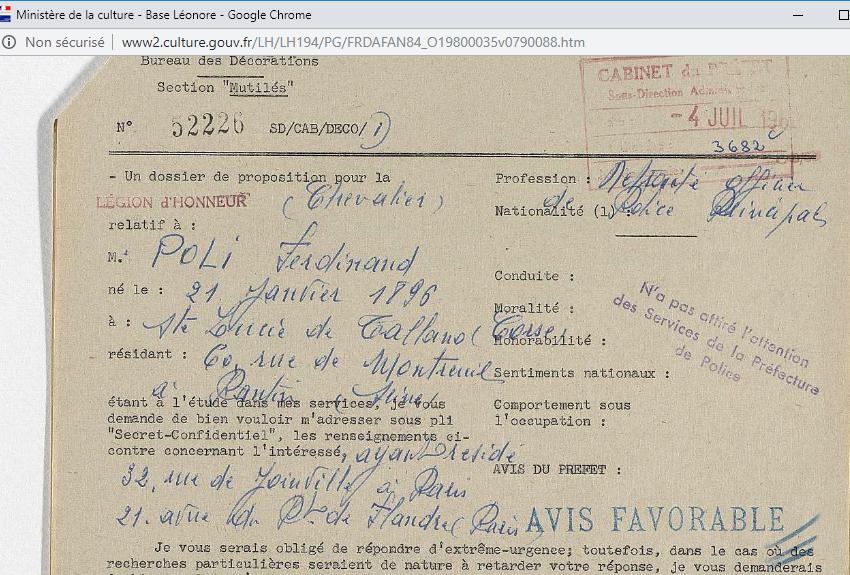 Ministère de la culture - Base Léonore - Google Chrome
Non sécurisé www2.culture.gouv.fr/LH/LH194/PG/FRDAFAN84_O19800035v0790088.htm
Bureau des Décorations
Section "Mutilés"
N° 52226 SD/CAB/DECO/
CABINET du PREFET
Sous-Direction
-4 JUIL
3682
- Un dossier de proposition pour la
LÉGION d'HONNEUR (Chevalier)
relatif à :
M. POLI Ferdinand
né le : 21 Janvier 1896
à : Ste Lucie de Tallano (Corse)
résidant : 60, rue de Montreuil
à Pantin (Seine)
étant à l'étude dans mes services, je vous
demande de bien vouloir m'adresser sous pli
"Secret-Confidentiel", les renseignements ci-
contre concernant l'intéressé, ayant résidé
32, rue de Joinville à Paris
21. avnue du Pt de Flandre (Paris)
Profession : Retraité officier
de Police Principal
Nationalité (1) :
Conduite :
Moralité :
Honorabilité :
Sentiments nationaux :
Comportement sous
l'occupation :
N'a pas attiré l'attention
des Services de la Préfecture
de Police
AVIS DU PREFET :
AVIS FAVORABLE
Je vous serais obligé de répondre d'extrême-urgence; toutefois, dans le cas où des
recherches particulières seraient de nature à retarder votre réponse, je vous demanderais